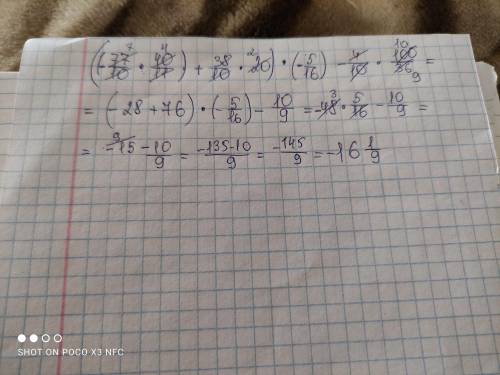 (-77/10 · 40/11) + 38/10 · 20) · (-5/16) - 4/10 · 100/36 =
= (-28 + 76) · (-5/16) - 10/9 = -48 · 5/16 - 10/9 =
= -15 - 10/9 = -135-10/9 = -145/9 = -16 1/9
SHOT ON POCO X3 NFC